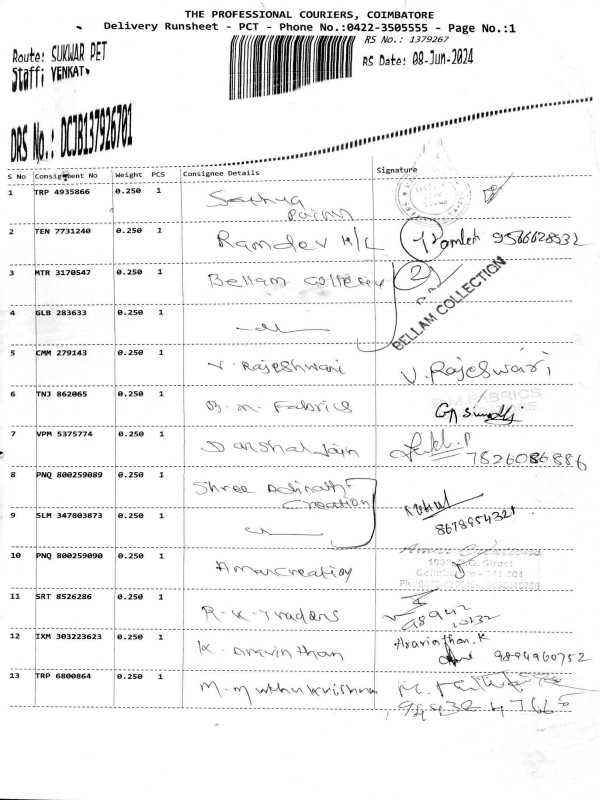 THE PROFESSIONAL COURIERS, COIMBATORE
Delivery Runsheet - PCT - Phone No.:0422-3505555 - Page No.:1
RS No.: 1379267
Route: SUKWAR PET
Staff: VENKAT
RS Date: 08-Jun-2024
DRS No.: DCJB137926701
S No Consignment No Weight PCS Consignee Details Signature
1 TRP 4935866 0.250 1 Sathya
2 TEN 7731240 0.250 1 Ramdev H/L Kamlesh 9566628532
3 MTR 3170547 0.250 1 Bellam collection 2
BELLAM COLLECTION
4 GLB 283633 0.250 1
5 CMM 279143 0.250 1 V. Rajeshwari V. Rajeswari
6 TNJ 862065 0.250 1 B. M. Fabrics B.M.FABRICS
7 VPM 5375774 0.250 1 Danshal Jain
7826086886
8 PNQ 800259089 0.250 1 Shree Adinath
Creation
9 SLM 347803873 0.250 1 8678954321
10 PNQ 800259090 0.250 1 Aman Creation
11 SRT 8526286 0.250 1 R. K. Traders 98942
10132
12 IXM 303223623 0.250 1 K. Aravinthan Aravinthan. K
9894960752
13 TRP 6800864 0.250 1 M. Muthukrishna